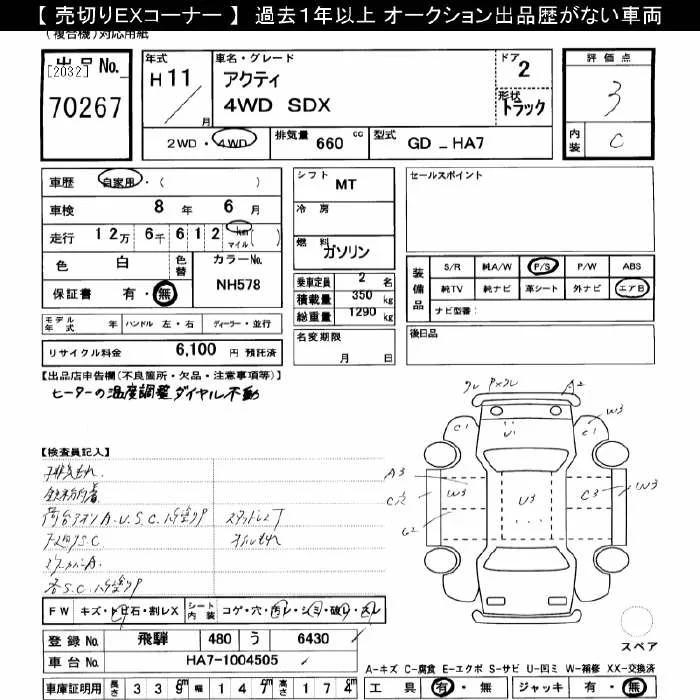 【 売切りEXコーナー 】 過去1年以上 オークション出品歴がない車両
(複合機)対応用紙
出品No.
[2032]
70267
年式
H 11
月
車名・グレード
アクティ
4WD SDX
ドア
2
形状
トラック
2WD・4WD
排気量 660 cc
型式 GD - HA7
評価点
3
内装 C
車歴 自家用・( )
車検 8 年 6 月
走行 12万 6千 6 1 2 Km マイル ( )
色 白 色替 カラーNo. NH578
保証書 有・無
モデル年式 年 ハンドル 左・右 ディーラー・並行
リサイクル料金 6,100 円 預託済
シフト MT
冷房
燃料 ガソリン
乗車定員 2 名
積載量 350 kg
総重量 1290 kg
名変期限
月 日
セールスポイント
装備品
S/R 純A/W P/S P/W ABS
純TV 純ナビ 革シート 外ナビ エアB
ナビ型番:
後日品
【出品店申告欄(不良箇所・欠品・注意事項等)】
ヒーターの温度調整ダイヤル不動
【検査員記入】
スタッドレス
オイルもれ
A2
C1 U1 C1 W3
A3
W3 U3 C3 W3
G2
FW キズ・トビ石・割レX シート内装 コゲ・穴・汚レ・シミ・破レ・スレ
登録No. 飛騨 480 う 6430
車台No. HA7-1004505
車庫証明用 長さ 3 3 9 cm 幅 1 4 7 cm 高さ 1 7 4 cm
スペア
A-キズ C-腐食 E-エクボ S-サビ U-凹ミ W-補修 XX-交換済
工具 有・無 ジャッキ 有・無